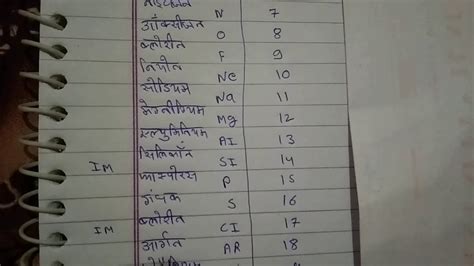 नाइट्रोजन N 7
ऑक्सीजन O 8
फ्लोरीन F 9
नियोन Ne 10
सोडियम Na 11
मैग्नीशियम Mg 12
एल्युमिनियम AI 13
IM सिलिकॉन SI 14
फास्फोरस P 15
गंधक S 16
IM क्लोरीन CI 17
आर्गन AR 18